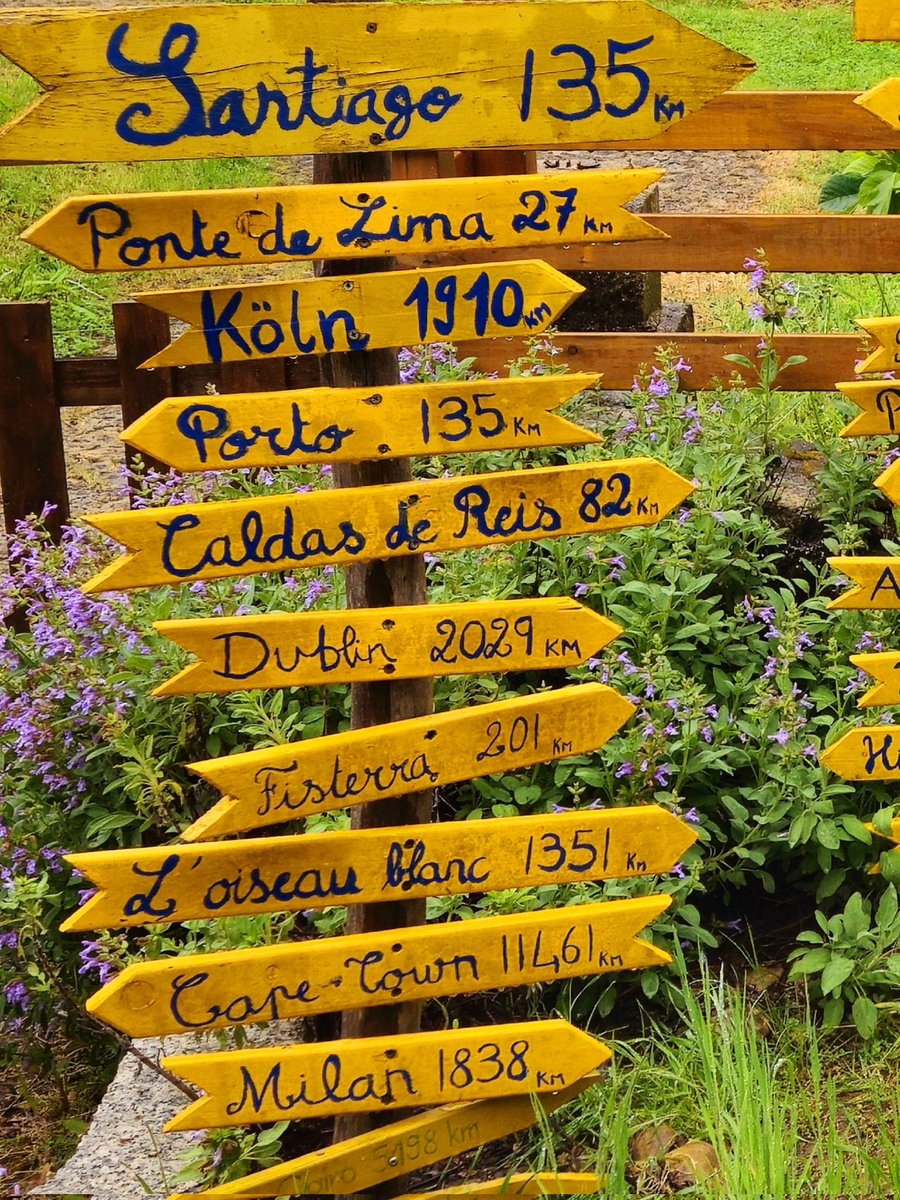 Santiago 135 KM
Ponte de Lima 27 KM
Köln 1910 KM
Porto 135 KM
Caldas de Reis 82 KM
Dublin 2029 KM
Fisterra 201 KM
L'oiseau blanc 1351 KM
Cape-Town 11461 KM
Milan 1838 KM
5198 km